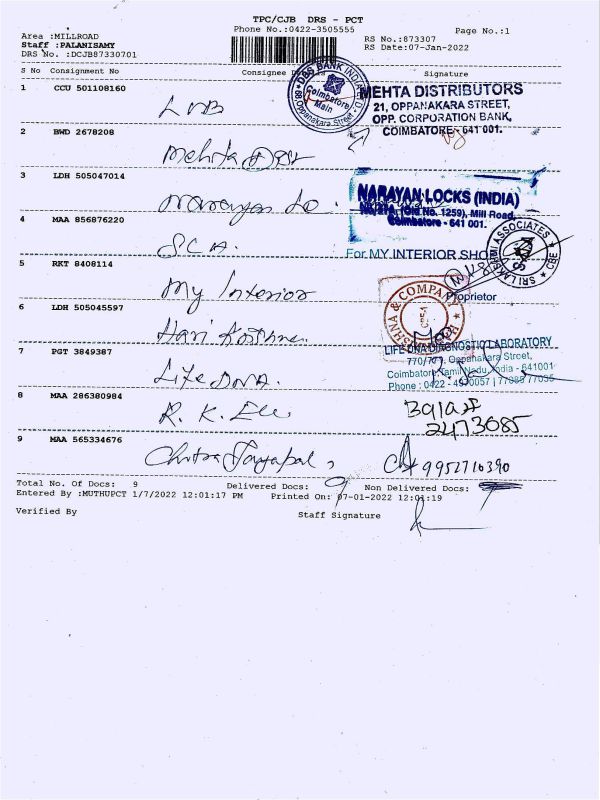 TPC/CJB DRS - PCT
Phone No.:0422-3505555
Page No.:1
Area :MILLROAD
Staff :PALANISAMY
DRS No. :DCJB87330701
RS No.:873307
RS Date:07-Jan-2022
S No Consignment No Consignee Signature
1 CCU 501108160
LVB
DBS BANK INDIA
Coimbatore
Main
89, Oppanakara Street
MEHTA DISTRIBUTORS
21, OPPANAKARA STREET,
OPP. CORPORATION BANK,
COIMBATORE - 641 001.
2 BWD 2678208
Mehta Dist
3 LDH 505047014
Narayan Lo.
NARAYAN LOCKS (INDIA)
(Old No. 1259), Mill Road,
Coimbatore - 641 001.
4 MAA 856876220
SCA.
SRI LAKSHMI ASSOCIATES
CBE
For MY INTERIOR SHOP
Proprietor
5 RKT 8408114
My Interior
6 LDH 505045597
Hari Krishna
& COMPANY
7 PGT 3849387
Life DNA.
LIFE DNA DIAGNOSTIC LABORATORY
770/771, Oppanakara Street,
Coimbatore, Tamil Nadu, India - 641001
Phone : 0422 - 4970057 |
8 MAA 286380984
R. K. Ele
Balaji
2473685
9 MAA 565334676
Chitra Jayapal,
9952710390
Total No. Of Docs: 9 Delivered Docs: 9 Non Delivered Docs:
Entered By :MUTHUPCT 1/7/2022 12:01:17 PM Printed On: 07-01-2022 12:01:19
Verified By Staff Signature